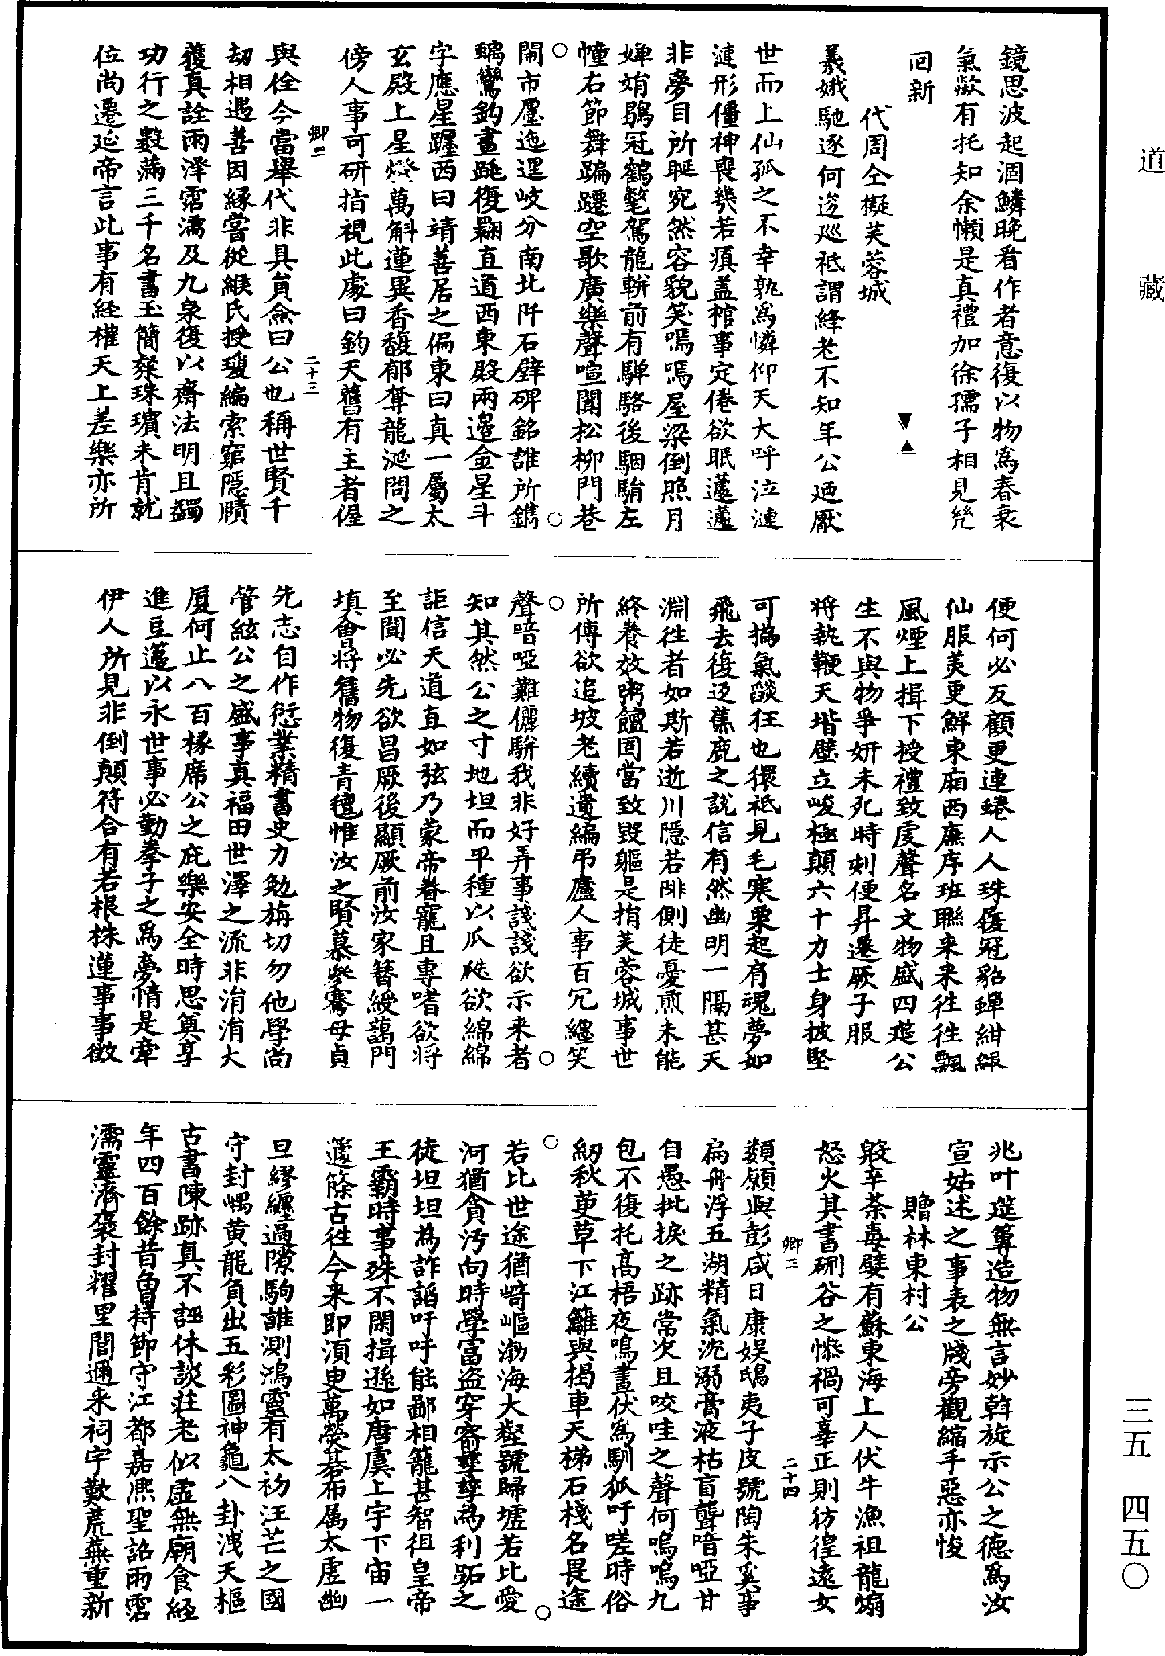 道藏
三五 四五〇
鏡思波起涸鱗晚看作者意復以物為春衰
氣歘有托知余懶是真禮加徐孺子相見幾
回新
代周仝擬芙蓉城
羲娥馳逐何逡巡祗謂絳老不知年公迺厭
世而上仙孤之不幸孰為憐仰天大呼泣漣
漣形僵神喪幾若瘨蓋棺事定倦欲眠蘧蘧
非旁目所睚宛然容貌笑嗎嗎屋梁倒照月
娟鶡冠鶴氅駕龍軿前有驒駱後駰騚左
幢右節舞蹁躚空歌廣樂聲喧闐松柳門巷
開市廛迤邐岐分南北阡石辟碑銘誰所鐫
螭鸞鈎畫跳復翾直道西東殿兩邊金星斗
字應星躔西曰靖善居之偏東曰真一屬太
玄殿上星燈萬斛蓮異香馥郁奪龍涎問之
傍人事可研指視此處曰鈞天舊有主者偓
卿二
二十三
與佺今當舉代非具員僉曰公也稱世賢千
劫相遇善因緣嘗從緱氏授瓊編索窮隱賾
獲真詮雨澤霑濡及九泉復以齋法明且蠲
功行之數滿三千名書玉簡粲珠璸未肯就
位尚遷延帝言此事有經權天上差樂亦所
便何必反顧更連蜷人人珠履冠貂蟬紺緅
仙服美更鮮東廂西廡序班聯來來往往飄
風煙上揖下授禮致虔聲名文物盛四筵公
生不與物爭妍未死時刻便昇遷厥子服
將執鞭天堦壁立峻極顛六十力士身披堅
可撝氣燄狂也獧祗見毛寒栗起肩魂夢如
飛去復返蕉鹿之說信有然幽明一隔甚天
淵往者如斯若逝川隱若陫側徒憂煎未能
終養效粥饘固當致毀軀是捐芙蓉城事世
所傳欲追坡老續遺編弔廬人事百冗纏笑
聲喑啞難儷駢我非好弄事諓諓欲示來者
知其然公之寸地坦而平種以瓜瓞欲綿綿
詎信天道直如弦乃蒙帝眷寵且專嗜欲將
至聞必先欲昌厥後顯厥前汝家簪綬藹門
填會將舊物復青氊惟汝之賢慕參騫母貞
先志自作愆業精書史力勉旃切勿他學尚
管絃公之盛事真福田世澤之流非涓涓大
厦何止八百椽席公之庇樂安全時思奠享
進豆籩以永世事必動拳子之為夢情是牽
伊人所見非倒顛符合有若根株蓮事事徵
兆叶筵篿造物無言妙斡旋示公之德為汝
宣姑述之事表之牋旁觀縮手惡亦悛
贈林東村公
殷辛荼毒嬖有蘇東海上人伏牛漁祖龍煽
怒火其書硎谷之慘禍可辜正則彷徨遠女
嬃願與彭咸日康娛鴟夷子皮號陶朱奚事
卿二
二十四
扁舟浮五湖精氣沉溺膏液枯盲聾喑啞甘
自愚批捩之跡常次且咬哇之聲何嗚嗚九
包不復托高梧夜鳴晝伏為馴狐吁嗟時俗
紉秋荑草下江蘺與揭車天梯石棧名畏途
若比世途猶崎嶇渤海大壑號歸墟若比愛
河猶貪汚向時學富盜穿窬孳孳為利跖之
徒坦坦為詐謟吁吁能鄙相籠甚智狙皇帝
王霸時事殊不聞揖遜如唐虞上宇下宙一
蘧篨古往今來即須臾萬熒碁布屬太虛幽
旦繆纏過隙駒誰測鴻靈有太初汪芒之國
守封嵎黃龍負出五彩圖神龜八卦洩天樞
古書陳跡真不誣休談莊老似虛無廟食經
年四百餘昔曾持節守江都嘉熙聖詔雨霑
濡靈濟褒封耀里閭邇來祠宇歎荒蕪重新